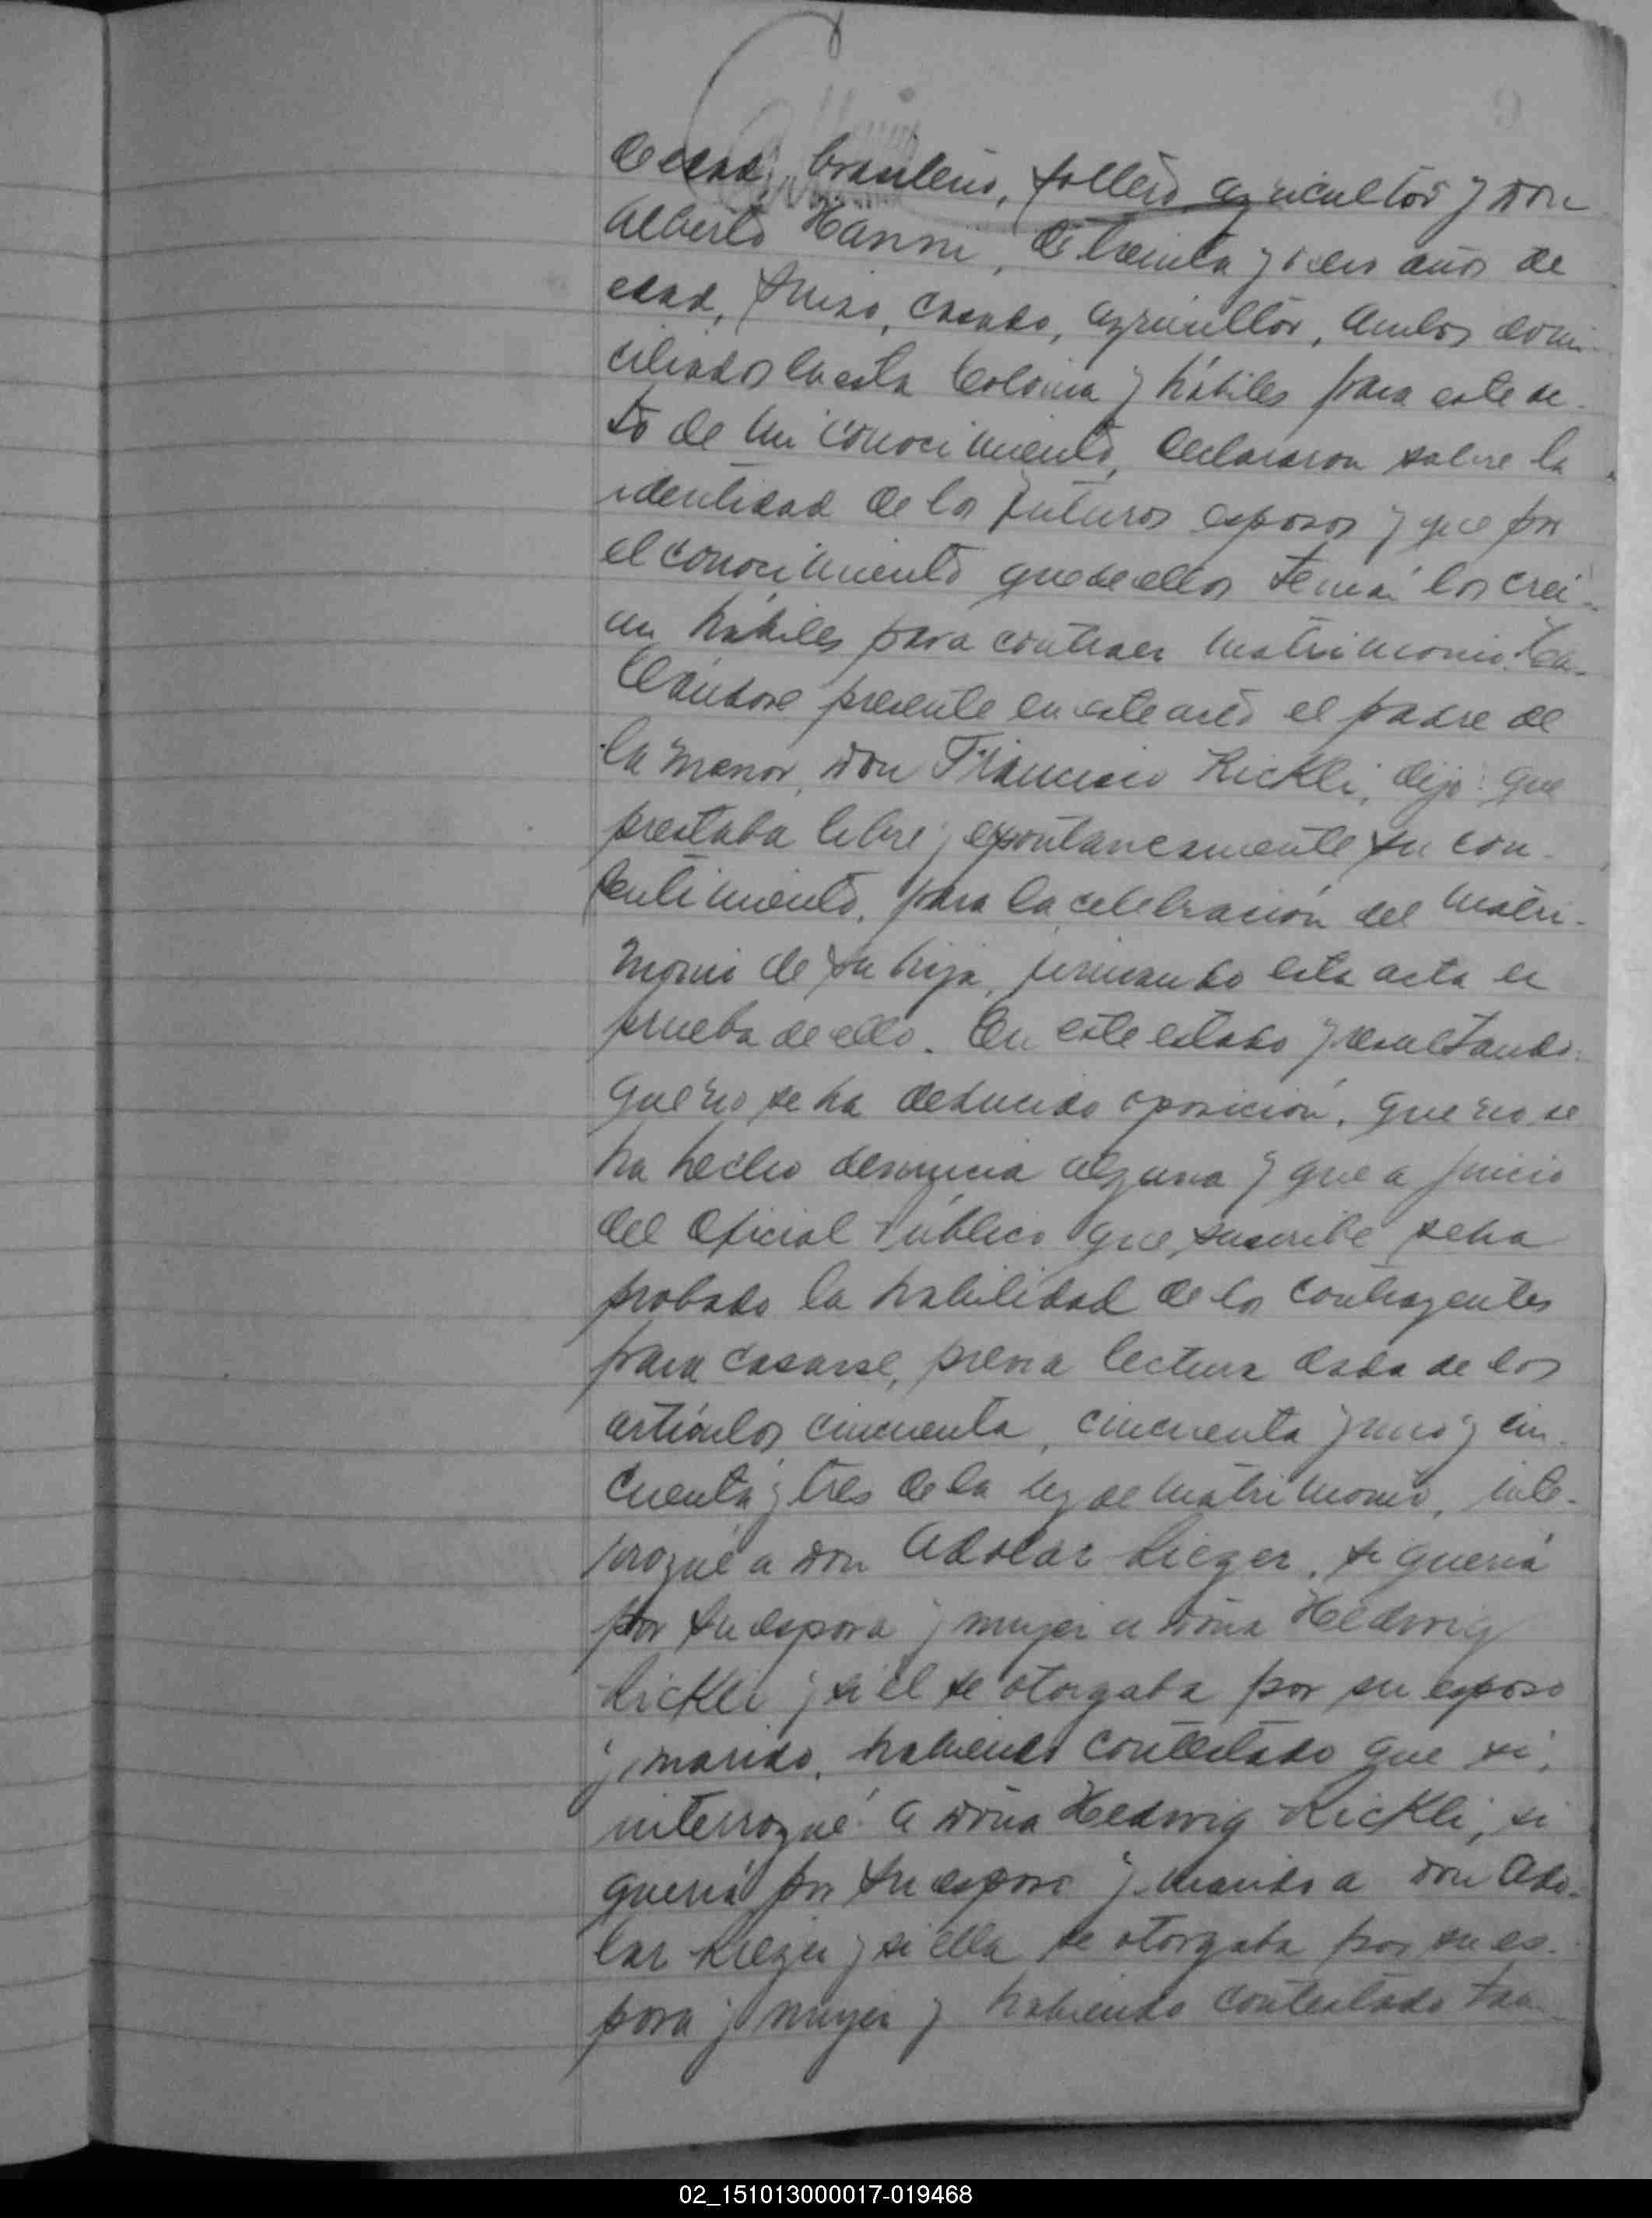 de edad, brasilero, soltero, agricultor y don
Alberto Hanni, de treinta y seis años de
edad, suizo, casado, agricultor, ambos domi-
ciliados en esta Colonia y hábiles para este ac-
to de mi conocimiento, declararon sobre la
identidad de los futuros esposos y que por
el conocimiento que de ellos tenían los creí-
an hábiles para contraer matrimonio.
presente en este acto el padre de
la menor, don Francisco Rickli, dijo: que
prestaba libre y espontaneamente su con-
sentimiento, para la celebración del matri-
monio de su hija, firmando esta acta en
prueba de ello. En este estado y resultando:
que no se ha deducido oposición, que no se
ha hecho denuncia alguna y que a juicio
del Oficial Público que suscribe se ha
probado la habilidad de los contrayentes
para casarse, previa lectura dada de los
artículos cincuenta, cincuenta y uno y cin-
cuenta y tres de la ley de matrimonio, inte-
rrogué a don Adolar Rieger, si quería
por su esposa y mujer a doña Hedwig
Rickli y si él se otorgaba por su esposo
y marido, habiendo contestado que si,
interrogué a doña Hedwig Rickli, si
quería por su esposo y marido a don Ado-
lar Rieger y si ella se otorgaba por su es-
posa y mujer y habiendo contestado tam-
02_151013000017-019468